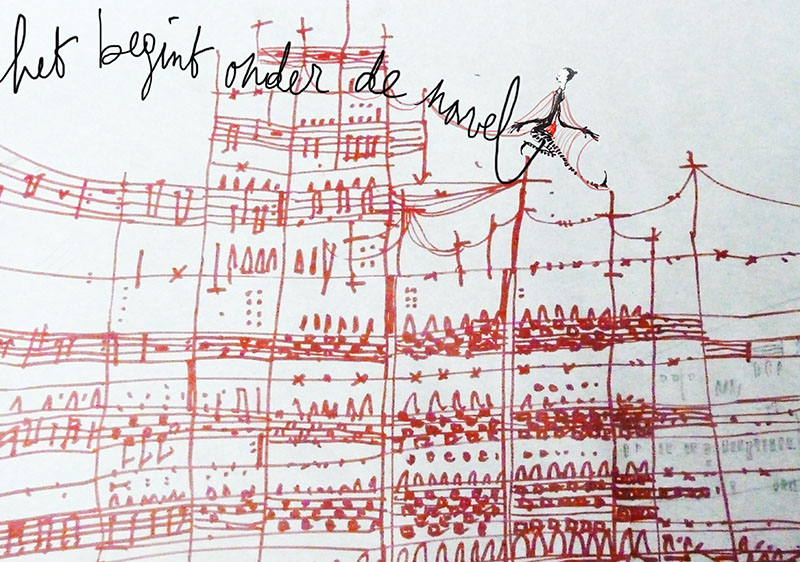 het begint onder de navel